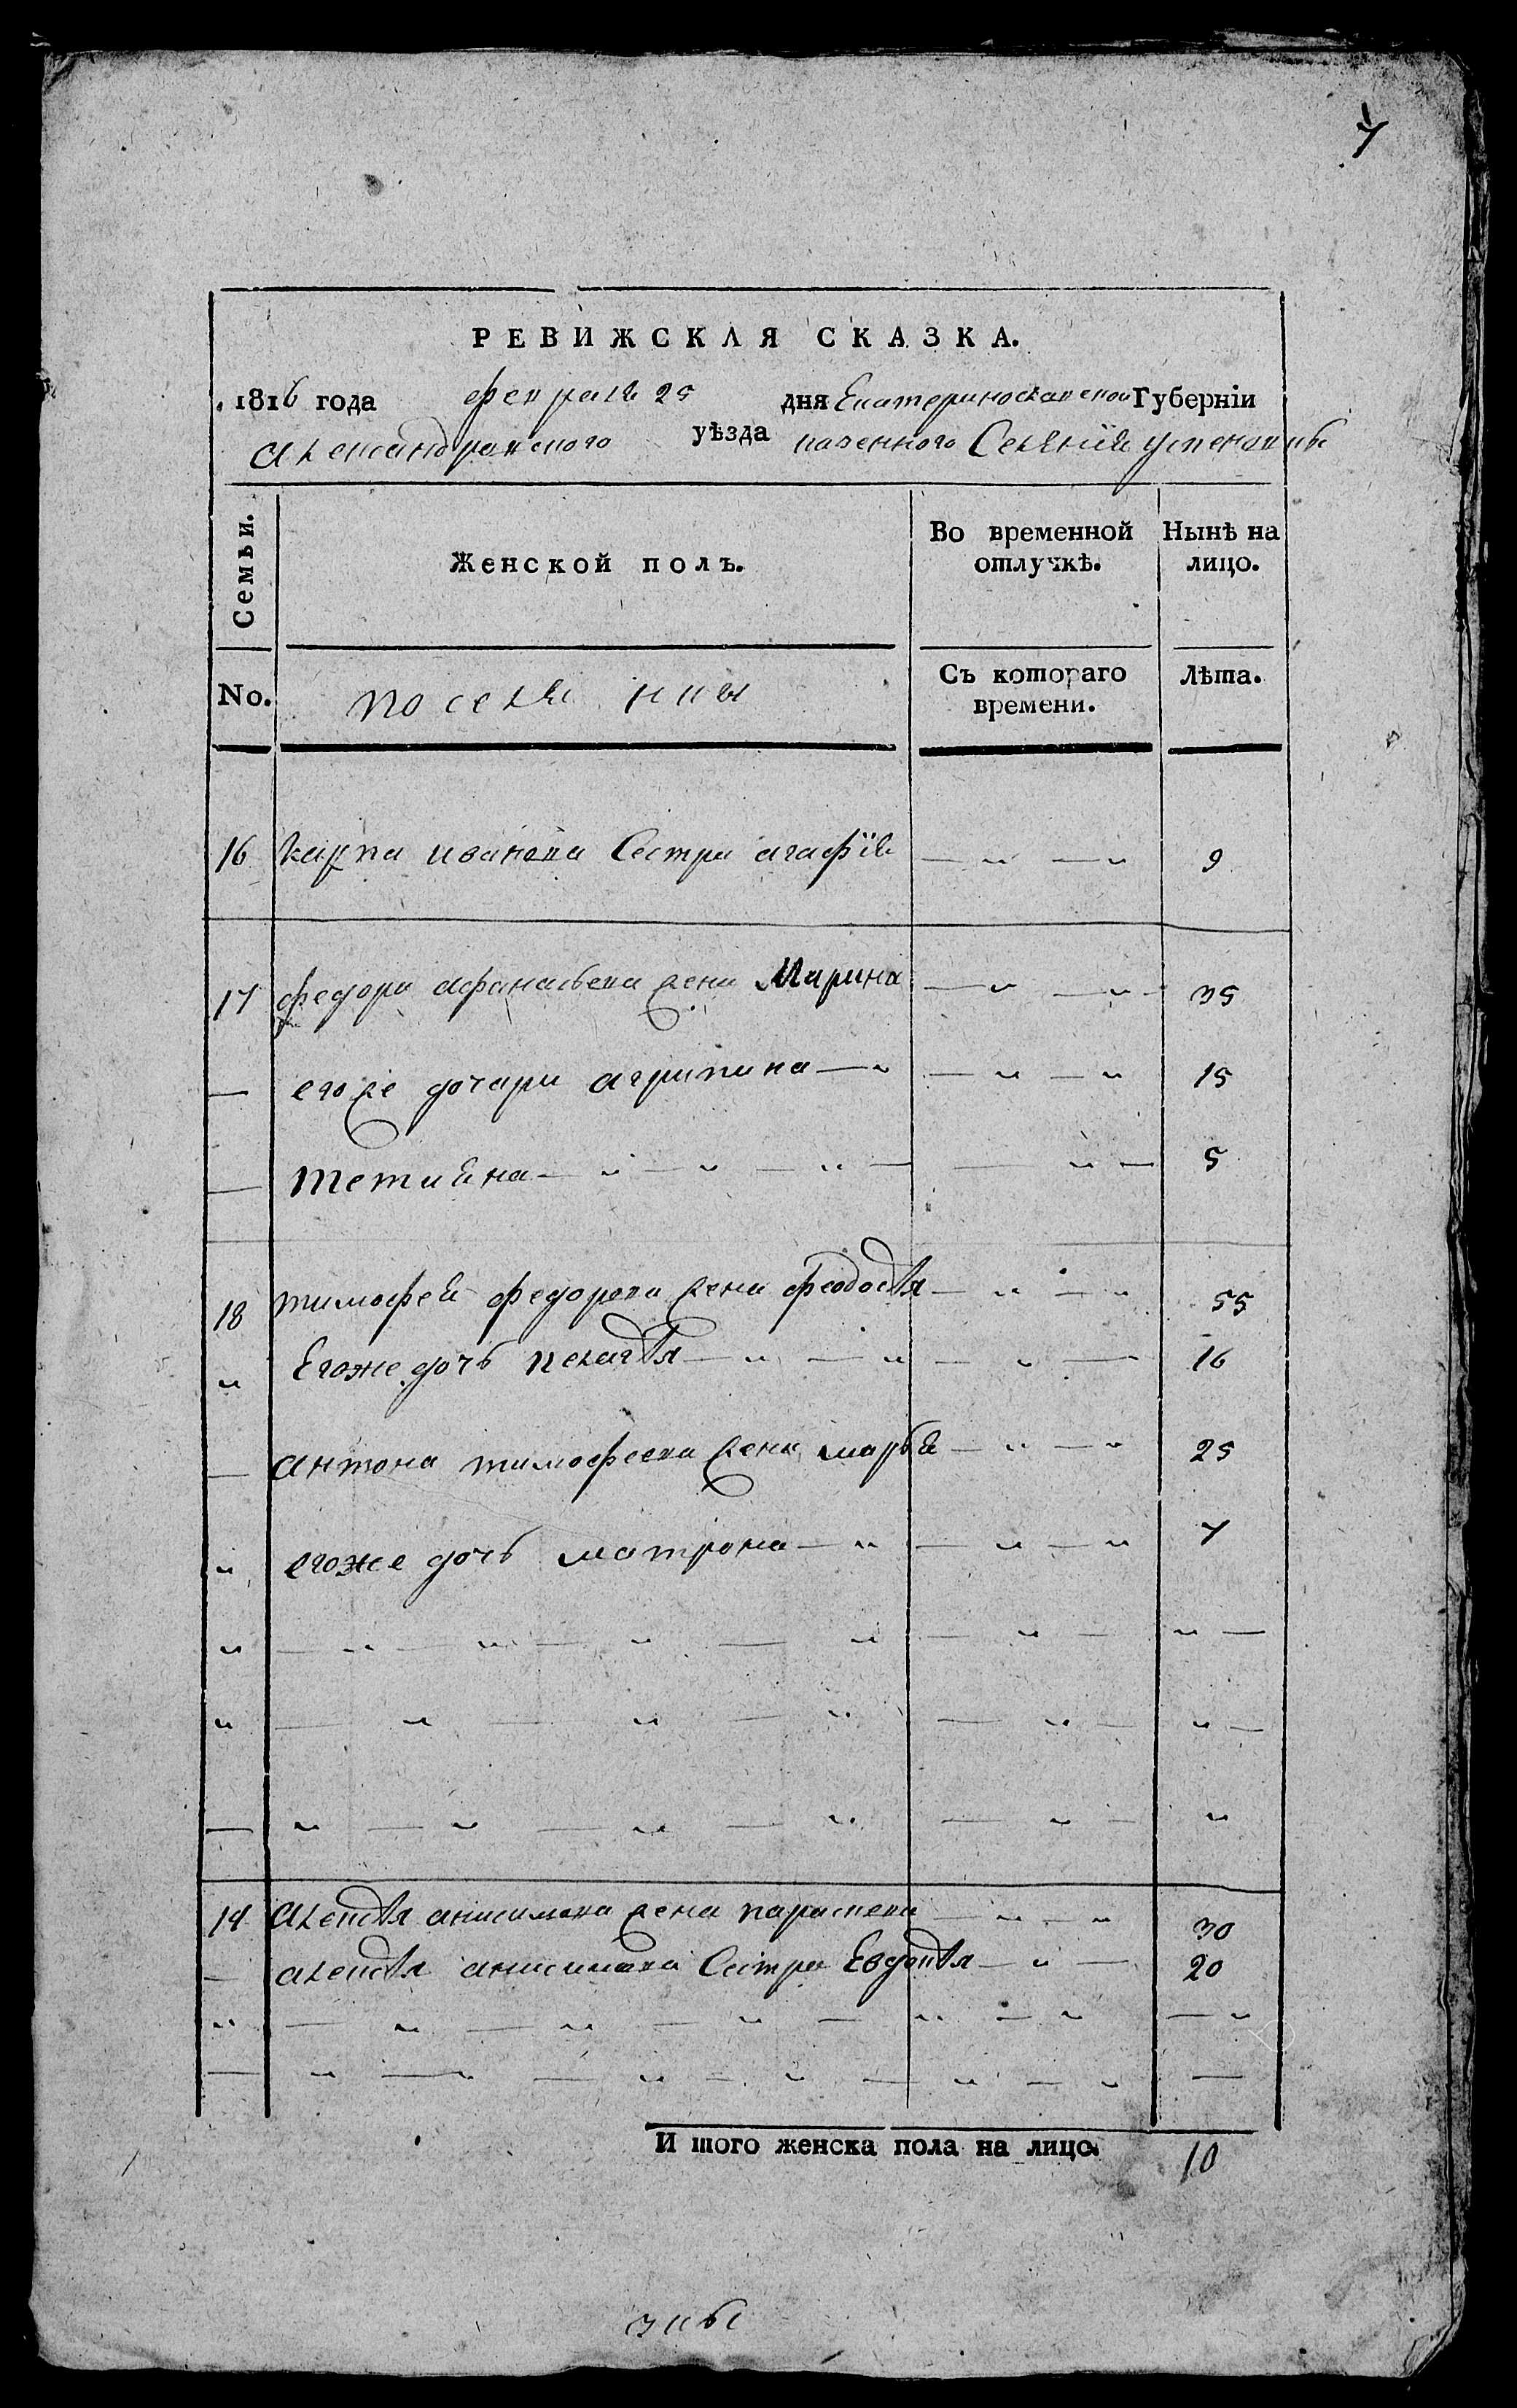 7
РЕВИЖСКАЯ СКАЗКА.
1816 года февраля 25 дня Екатеринославской Губерніи
александровского уѣзда казенного Селенія успеновки
Семьи. Женской полъ. Во временной отлучкѣ. Нынѣ на лицо.
No. поселянки Съ котораго времени. Лѣта.
16 карпа иванова Сестра агафія — „ — „ 9
17 федора афанасьева жена Марина — „ — „ 35
— егоже дочери агрипина — „ — „ — „ 15
— Тетияна — „ — „ — „ — — „ — 5
18 тимофея федорова жена феодосія — „ — „ 55
„ Егоже дочь пелагія — „ — „ — „ — 16
— антона тимофеева жена марья — „ — „ 25
„ егоже дочь матрона — „ — „ — „ 7
„ — „ — „ — „ — „ — „ — „ —
„ — „ — „ — „ — „ — „ —
— „ — „ — „ — „ — „ — „
19 алексея анисимова жена параскева — „ — „ 30
— алексея анисимова Сестра Евдокія — „ — 20
„ — „ — „ — „ — „ — „ — „
— „ — „ — „ — „ — „ — „ —
И того женска пола на лицо. 10